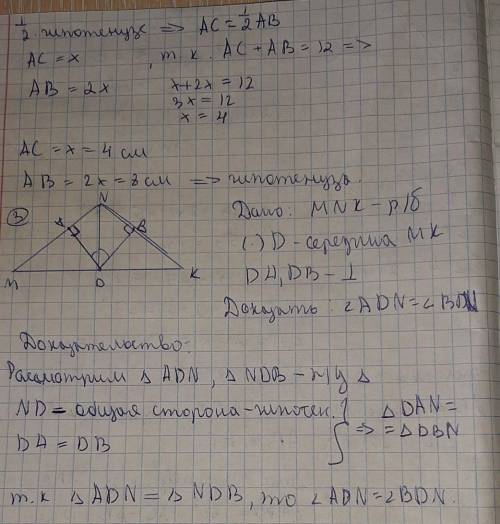 1/2 гипотенузе => AC = 1/2 AB
AC = x , т.к. AC + AB = 12 =>
AB = 2x x + 2x = 12
3x = 12
x = 4
AC = x = 4 см
AB = 2x = 8 см => гипотенуза.
③ N Дано: MNK - р/б
A B (·) D - середина MK
M D K DA, DB - ⊥
Доказать: ∠ADN = ∠BDN
Доказательство:
Рассмотрим △ ADN, △ NDB - п/у △
ND - общая сторона - гипотен. } △ DAN =
DA = DB => = △ DBN
т.к △ ADN = △ NDB, то ∠ADN = ∠BDN.